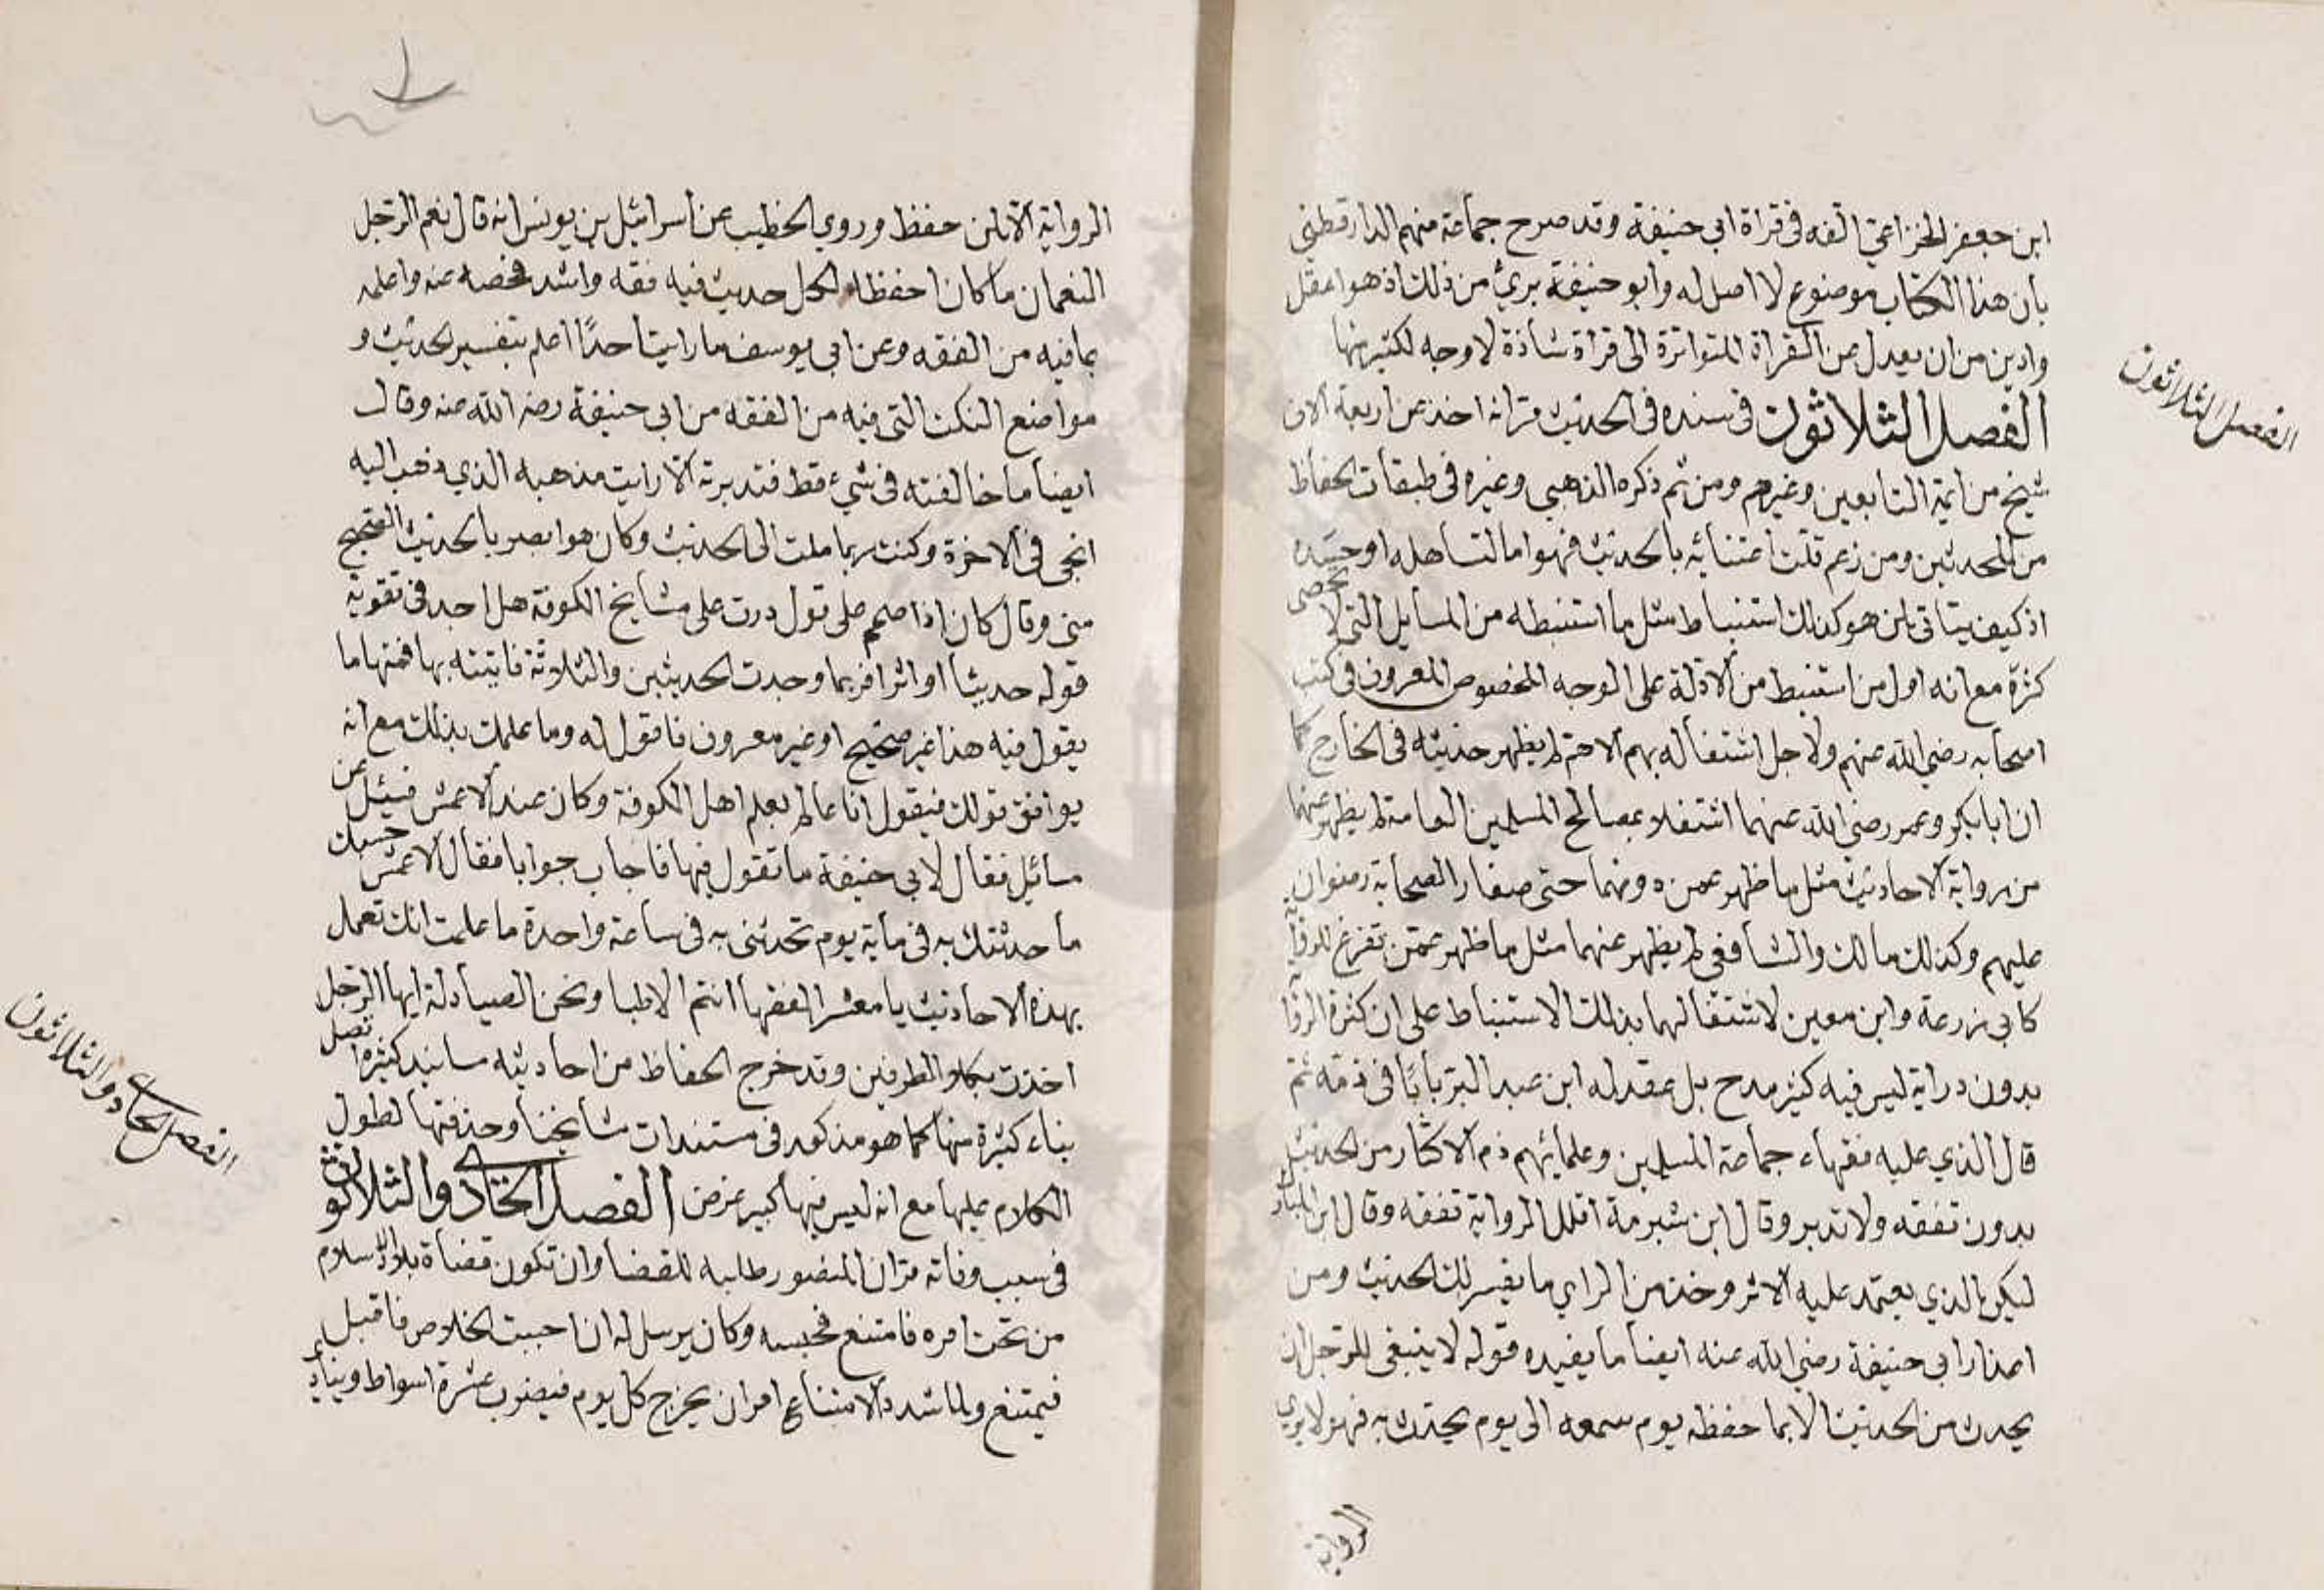 ابن جعفر الخزاعي الفه في قراة ابي حنيفة وقد صرح جماعة منهم الدارقطني
بان هذا الكتاب موضوع لا اصل له وابو حنيفة بريئ من ذلك اذ هو اعقل
وادين من ان يعدل عن القراة المتواترة الى قراة شاذة لا وجه لكثير منها
الفصل الثلاثون في سنده في الحديث مر انه اخذ عن اربعة الاف
شيخ من ايمة التابعين وغيرهم ومن ثم ذكره الذهبي وغيره في طبقات الحفاظ
من المحدثين ومن زعم قلت اعتنائه بالحديث فهو اما لتساهله او حسده
اذ كيف يتاتى لمن هو كذلك استنباط مثل ما استنبطه من المسايل التي لا تحصى
كثرة مع انه اول من استنبط من الادلة على الوجه المخصوص المعروف في كتب
اصحابه رضي الله عنهم ولاجل اشتغاله بهم الاهتم لم يظهر حديثه في الخارج كما
ان ابا بكر وعمر رضي الله عنهما اشتغلا بمصالح المسلمين العامة لم يظهر عنهما
من رواية الاحاديث مثل ما ظهر عمن دونهما حتى صغار الصحابة رضوان الله
عليهم وكذلك مالك والشافعي لم يظهر عنهما مثل ما ظهر عمن تفرغ للرواية
كابي زرعة وابن معين لاشتغالهما بذلك الاستنباط على ان كثرة الرواية
بدون دراية ليس فيه كثير مدح بل عقد له ابن عبد البر بابًا في ذمه ثم
قال الذي عليه فقهاء جماعة المسلمين وعلمائهم ذم الاكثار من الحديث
بدون تفقه ولا تدبر وقال ابن شبرمة اقلل الرواية تفقه وقال ابن المبارك
ليكن الذي يعتمد عليه الاثر وخذ من الراي ما يفسر لك الحديث ومن
اعذار ابي حنيفة رضي الله عنه ايضا ما يفيده قوله لا ينبغي للرجل ان
يحدث من الحديث الا بما حفظه يوم سمعه الى يوم يحدث به فهو لا يروي
الرواية
الفصل الثلاثون
الرواية الا لمن حفظ وروي الخطيب عن اسرائيل بن يونس انه قال نعم الرجل
النعمان ما كان احفظه لكل حديث فيه فقه واشد فحصه عنه واعلمه
بما فيه من الفقه وعن ابي يوسف ما رايت احدًا اعلم بتفسير الحديث و
مواضع النكت التي فيه من الفقه من ابي حنيفة رضي الله عنه وقال
ايضا ما خالفته في شيء قط فتدبرته الا رايت مذهبه الذي ذهب اليه
انجى في الاخرة وكنت ربما ملت الى الحديث وكان هو ابصر بالحديث الصحيح
مني وقال كان اذا صمم على قول درت على مشايخ الكوفة هل اجد في تقوية
قوله حديثا او اثرا فربما وجدت الحديثين والثلاثة فاتيته بها فمنها ما
يقول فيه هذا غير صحيح او غير معروف فاقول له وما علمك بذلك مع انه
يوافق قولك فيقول انا عالم بعلم اهل الكوفة وكان عند الاعمش فسئل عن
مسائل فقال لابي حنيفة ما تقول فيها فاجاب جوابا فقال الاعمش حسبك
ما حدثتك به في ماية يوم تحدثني به في ساعة واحدة ما علمت انك تعمل
بهذه الاحاديث يا معشر الفقها انتم الاطبا ونحن الصيادلة ايها الرجل
اخذت بكلا الطرفين وقد خرج الحفاظ من احاديثه مسانيد كثيرة اتصل
بناء كثيرة منها كما هو مذكور في مستندات مشايخنا وحذفتها لطول
الكلام عليها مع انه ليس فيها كبير غرض الفصل الحادي والثلاثون
في سبب وفاته مر ان المنصور طلبه للقضا وان تكون قضاة بلاد الاسلام
من تحت امره فامتنع فحبسه وكان يرسل له ان احببت الخلاص فاقبل
فيمتنع ولما شدد الامتناع امر ان يخرج كل يوم فيضرب عشرة اسواط وينادي
الفصل الحادي والثلاثون